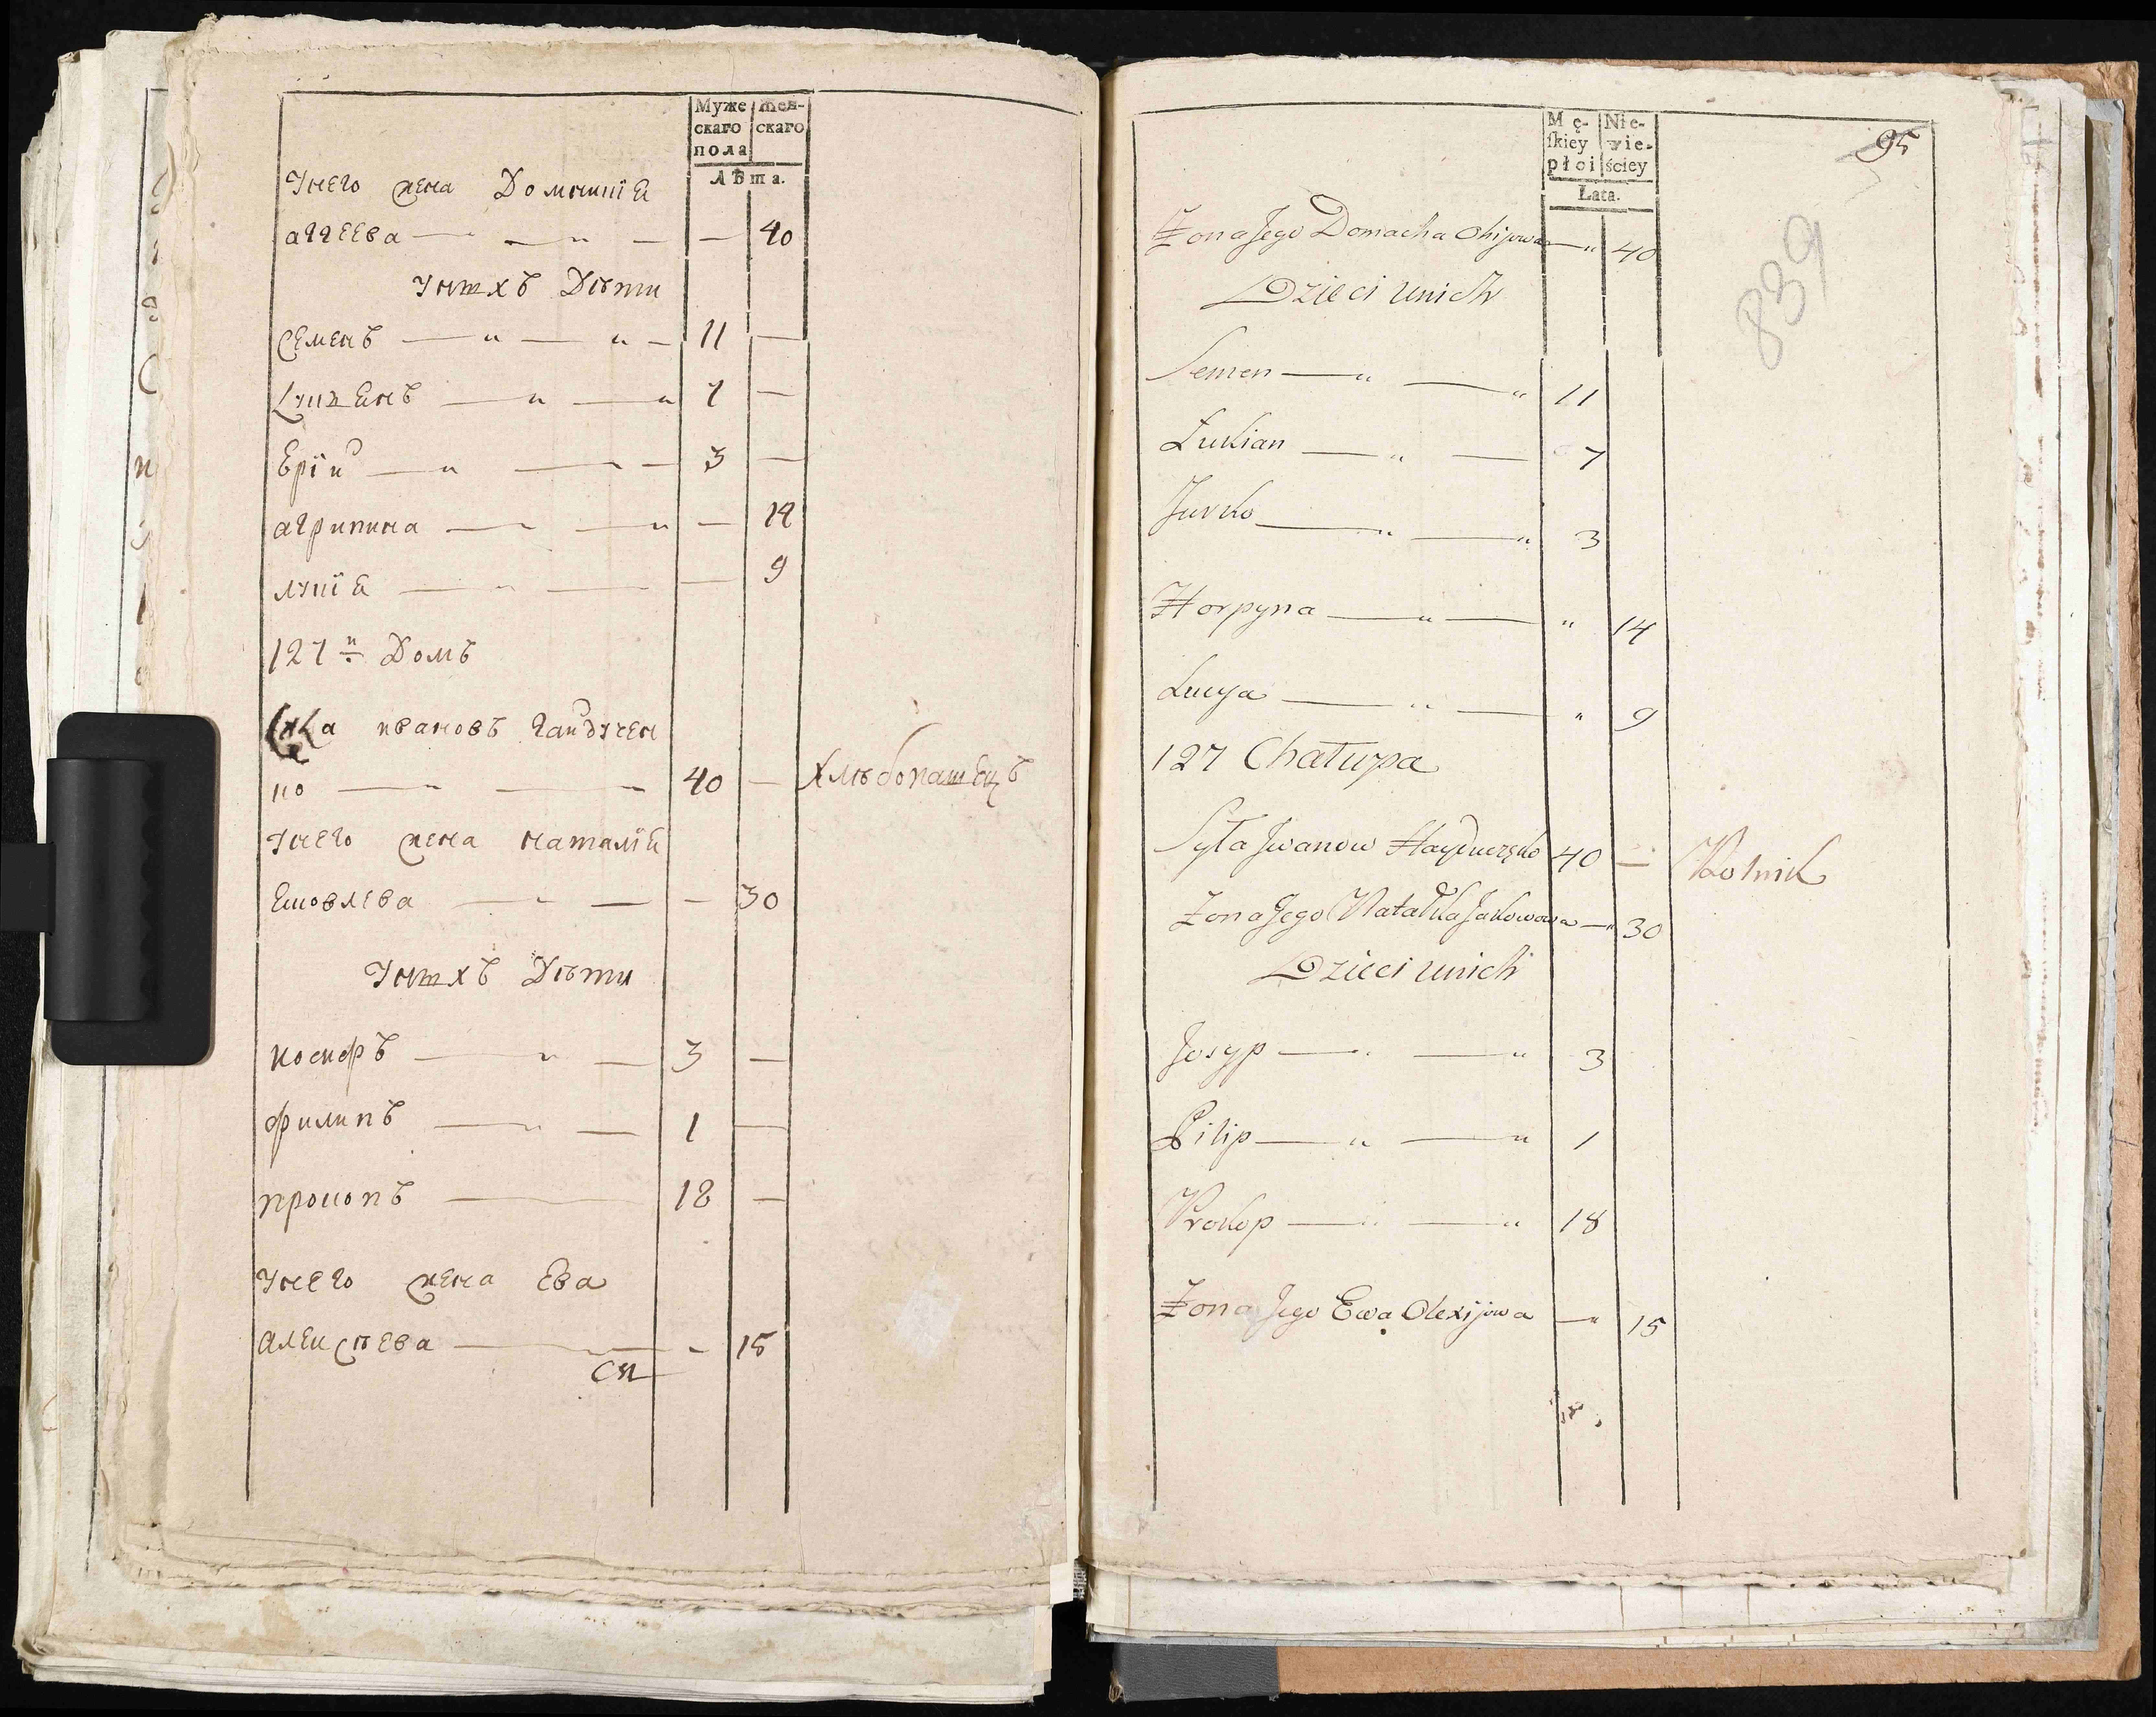 Муже
скаго
пола
Жен-
скаго
Лѣта.
Унего жена Домникія
аггеева — " — — 40
Унихъ Дѣти
Семенъ — " — " — 11 —
Лукіянъ — " — " 7 —
Ерій — " — — 3 —
агрипина — — " — 14
лукія — " — — 9
127й Домъ
ивановъ гайдучен
ко — " — " 40 — Хлѣбопашецъ
Унего жена наталія
Яковлева — " — — 30
Унихъ Дѣти
иосифъ — " — 3 —
филипъ — " — 1 —
прокопъ — 18 —
Унего жена Ева
Алексѣева — - 15
Mę-
ſkiey
płci
Nie-
wie-
ściey
Łata.
95
839
Żona Jego Domacha Ohijowa — " 40
Dzieci unich
Semen — " — " 11
Łukian — " — 7
Jurko — " — " 3
Horpyna — " — " 14
Łucya — " — " 9
127 Chałupa
Syła Jwanow Hayduczęko 40 — Rolnik
Żona Jego Natałka Jakowowa — " 30
Dzieci unich
Josyp — " — " 3
Pilip — " — " 1
Prokop — " — " 18
Żona Jego Ewa Olexijowa — " 15